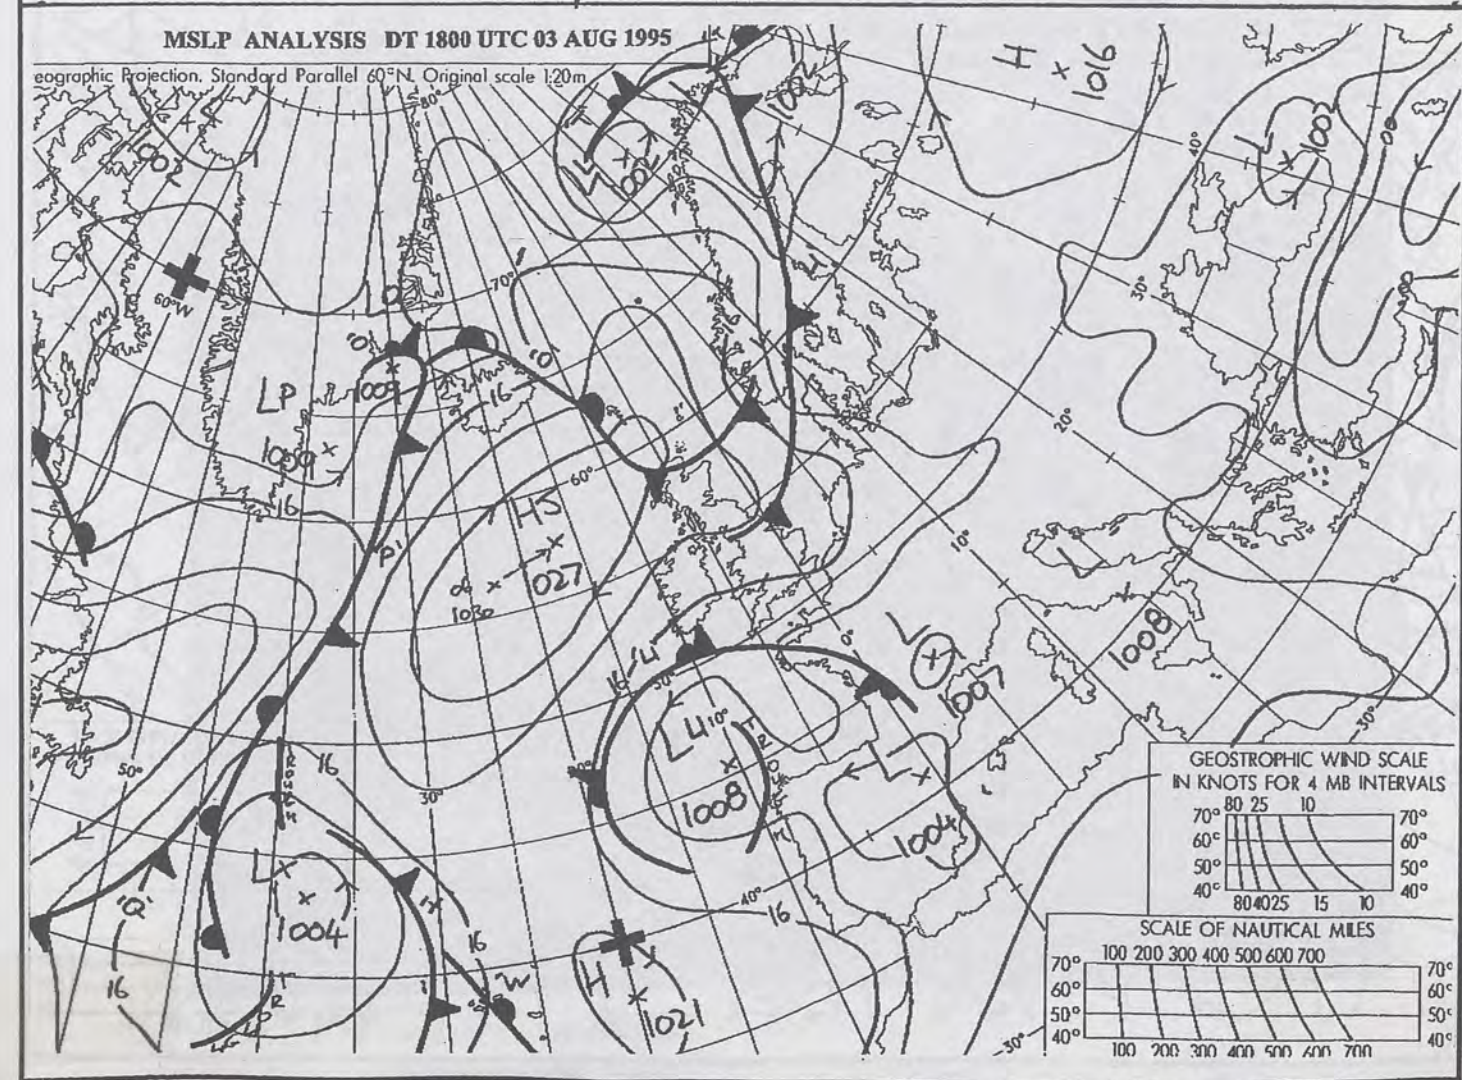 MSLP ANALYSIS DT 1800 UTC 03 AUG 1995
eographic Projection. Standard Parallel 60°N. Original scale 1:20m
80°
H
×
1016
L
1007
1002
1002
002
40°
60°W
70°
30°
LO
'O'
'O'
1009
16
LP
1009
20°
16
60°
HJ
'P'
027
1030
10°
L
1008
0°
L
1007
16
50°
LU
10°
TROUGH
1008
L
1004
50°
TROUGH
16
30°
L
1004
'Q'
16
16
'W'
40°
16
H
1021
TROF
30°
30°
GEOSTROPHIC WIND SCALE
IN KNOTS FOR 4 MB INTERVALS
80 25 10
70° 70°
60° 60°
50° 50°
40° 40°
80 40 25 15 10
SCALE OF NAUTICAL MILES
100 200 300 400 500 600 700
70° 70°
60° 60°
50° 50°
40° 40°
100 200 300 400 500 600 700